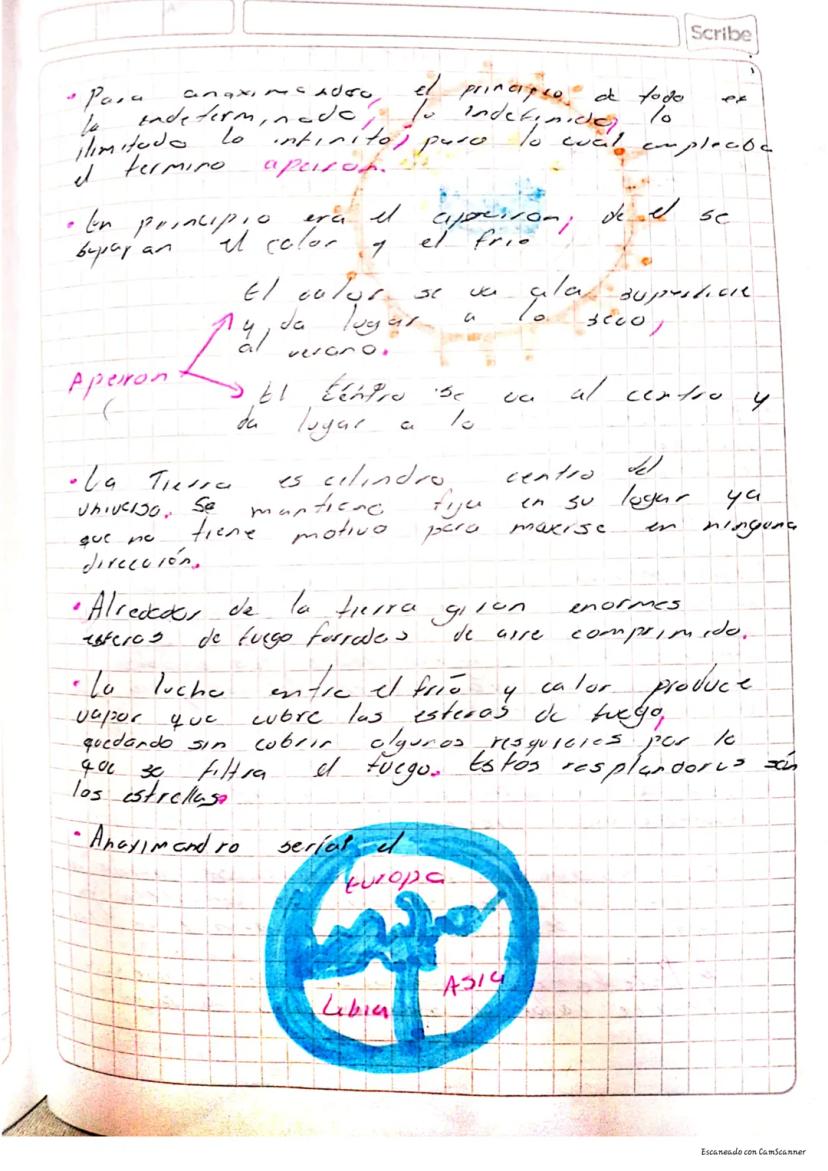 Scribe
• Para anaximandro, el principio de todo es
lo indeterminado, lo indefinido, lo
ilimitado lo infinito, para lo cual empleaba
el termino apeiron.
• En principio era el apeiron; de el se
separan el calor y el frío
El calor se va ala superficie
y da lugar a lo seco,
al verano.
Apeiron
El centro se va al centro y
da lugar a lo
• La Tierra es cilindro, centro del
universo. Se mantiene fija en su lugar ya
que no tiene motivo para moverse en ninguna
dirección.
• Alrededor de la tierra giran enormes
esferas de fuego forradas de aire comprimido.
• La lucha entre el frío y calor produce
vapor que cubre las esferas de fuego,
quedando sin cubrir algunos resquicios por lo
que se filtra el fuego. Estos resplandores són
las estrellas.
• Anaximandro serías el
Europa
Asia
Libia
Escaneado con CamScanner